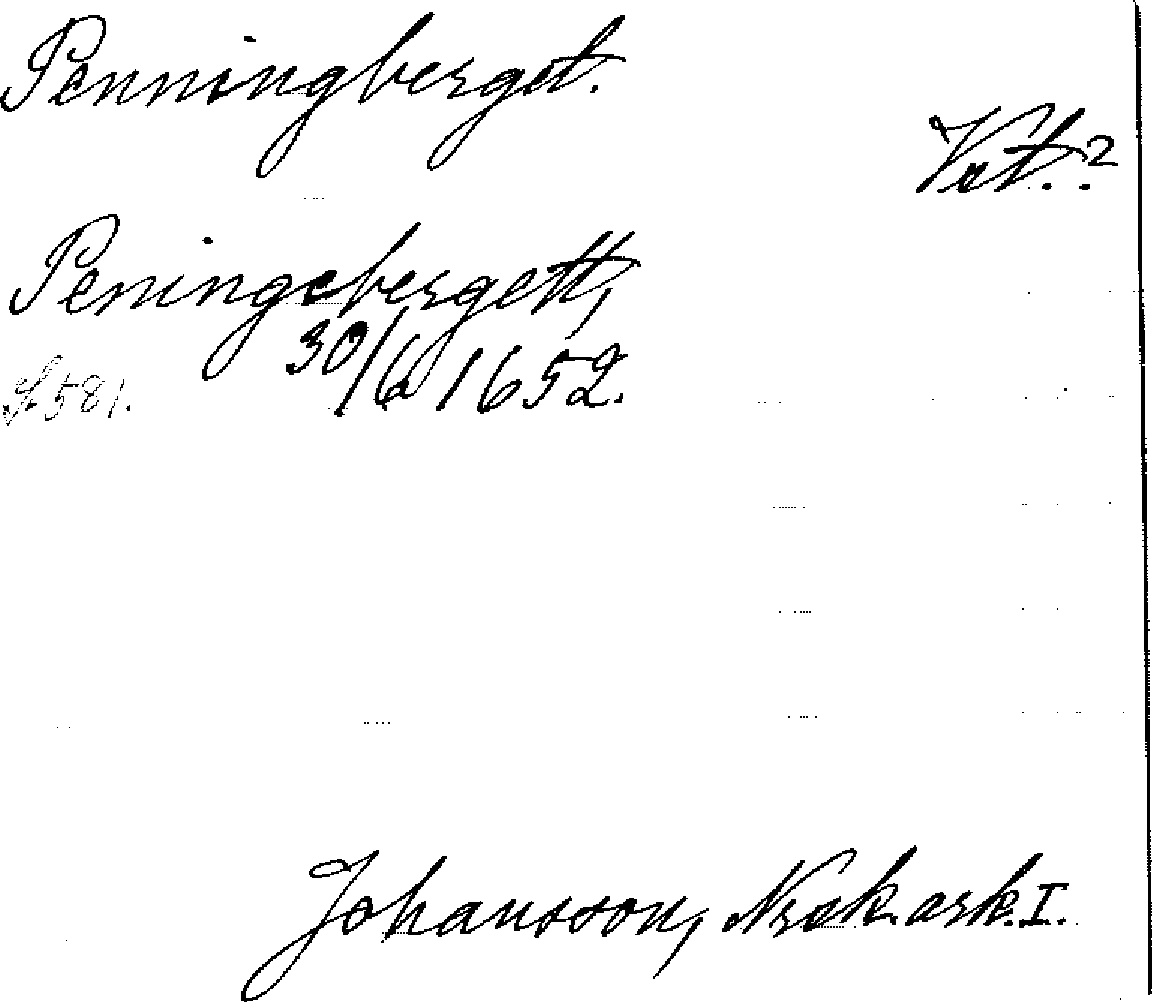 Penningberget.
Vat.?
Peningebergett,
30/6 1652.
S. 581.
Johansson, Norak. ark. I.